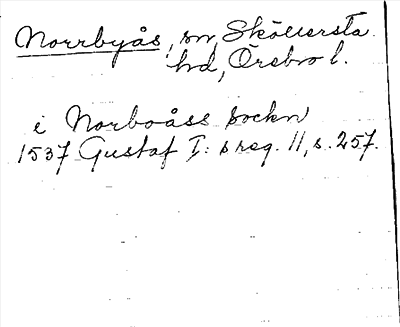 Norrbyås, sn, Sköllersta
hd, Örebro l.
i Norboåss sockn
1537 Gustaf I:s reg. 11, s. 257.